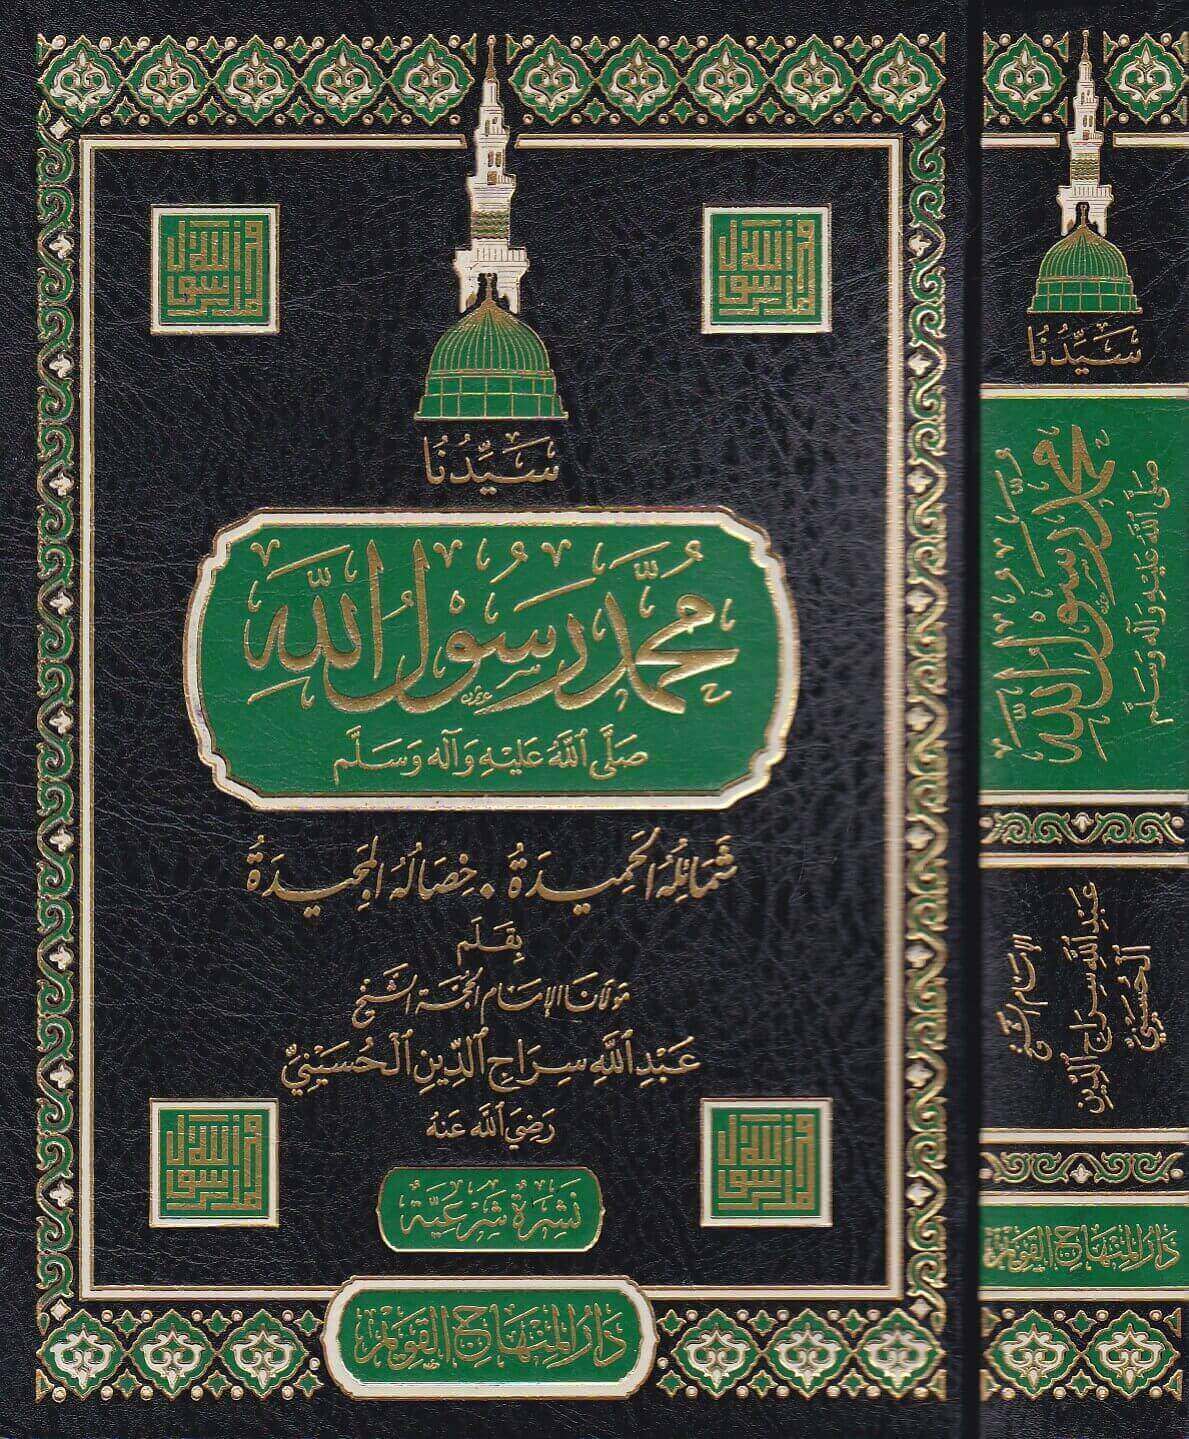 سَيِّدُنَا
مُحَمَّدٌ رَسُولُ اللَّهِ
صَلَّى اللَّهُ عَلَيْهِ وَآلِهِ وَسَلَّم
شَمَائِلُهُ الْحَمِيدَةُ . خِصَالُهُ الْمَجِيدَةُ
بِقَلَم
مَوْلَانَا الإِمَامِ الْحُجَّةِ الشَّيْخِ
عَبْدِ اللَّهِ سِرَاجِ الدِّينِ الْحُسَيْنِيِّ
رَضِيَ اللَّهُ عَنْهُ
نَشْرَةٌ شَرْعِيَّةٌ
دَارُ الْمِنْهَاجِ الْقَوِيمِ
سَيِّدُنَا
مُحَمَّدٌ رَسُولُ اللَّهِ
صَلَّى اللَّهُ عَلَيْهِ وَآلِهِ وَسَلَّم
الإِمَامِ الشَّيْخِ
عَبْدِ اللَّهِ سِرَاجِ الدِّينِ
الْحُسَيْنِيِّ
دَارُ الْمِنْهَاجِ الْقَوِيمِ